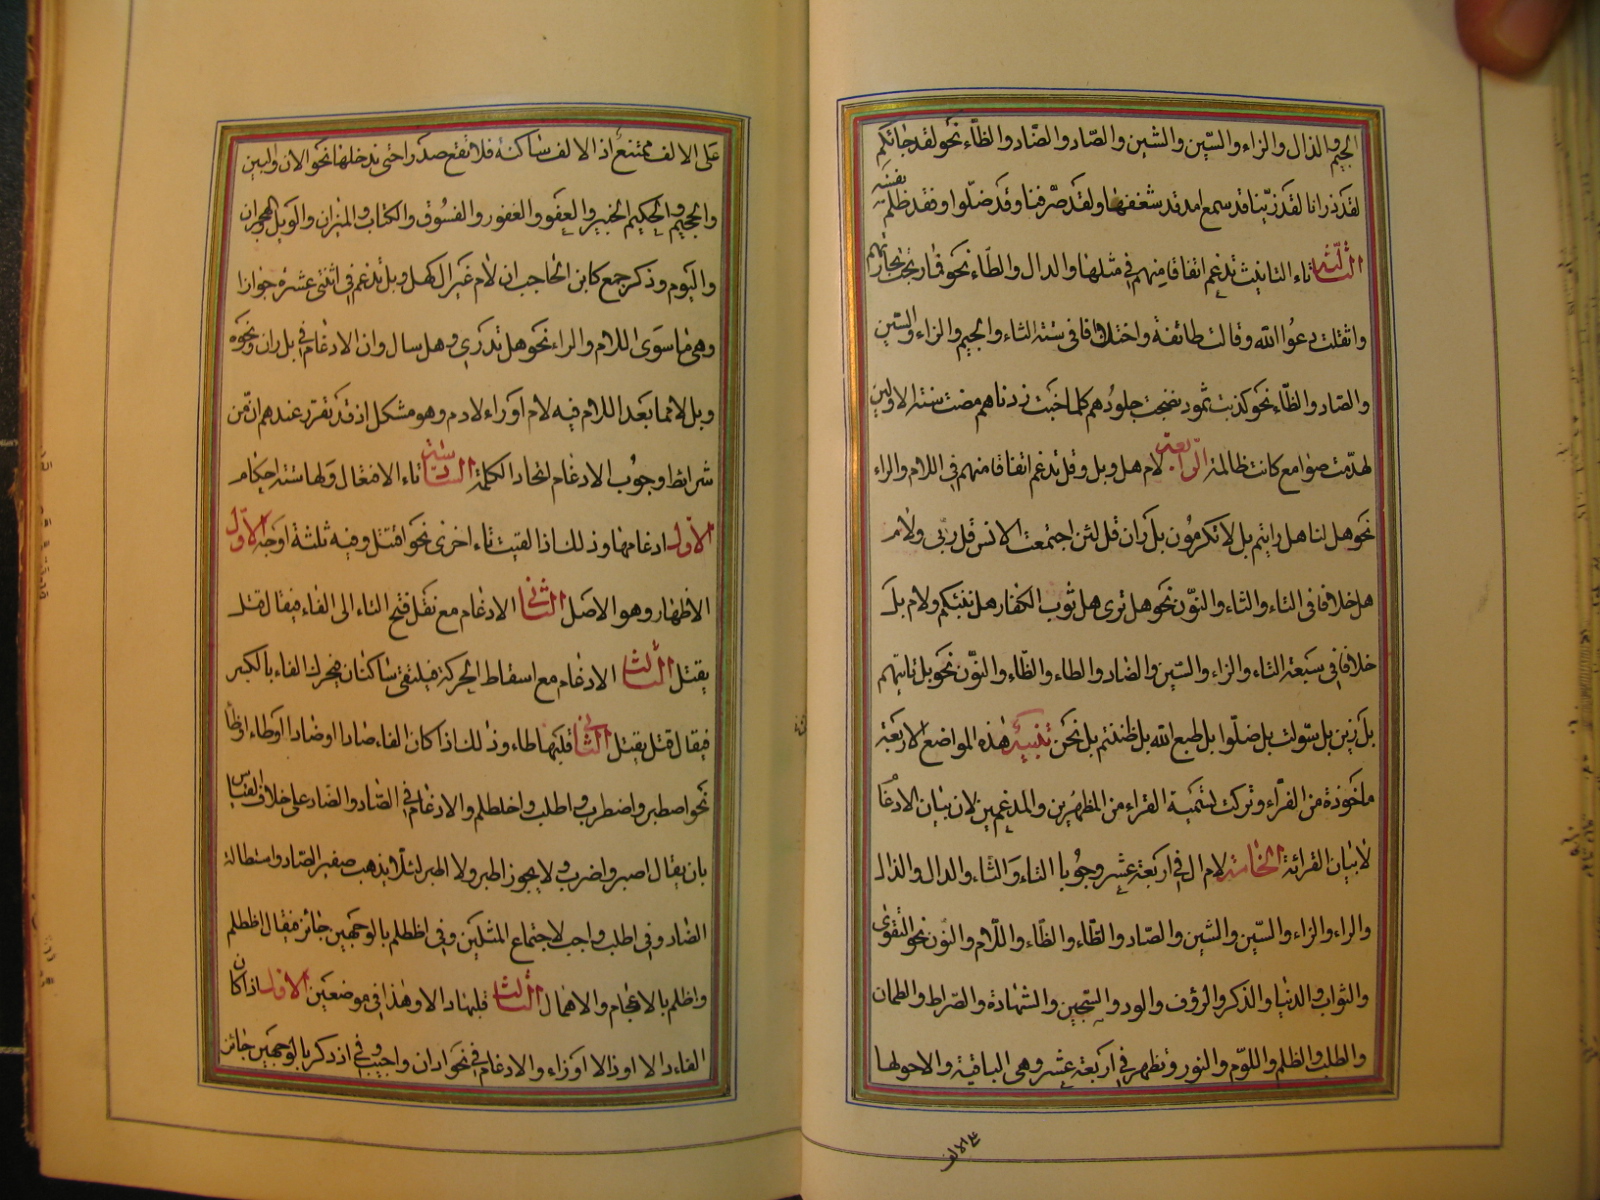 الجيم والذال والزاء والسّين والشين والصّاد والضّاد والظّاء نحو لقد جائكم
لقد ذرانا لقد زيّنا قد سمع قد شغفها ولقد صّرفنا وقد ضلّوا وفقد ظلم نفسه
الثالثة تاء التانيث تدغم اتفاقا منهم في مثلها والدال والطّاء نحو فما ربحت تجارتهم
واثقلت دعوا الله وقالت طائفة واختلافا في ستة الثاء والجيم والزاء والسّين
والصّاد والظّاء نحو كذبت ثمود نضجت جلودهم كلما خبت زدناهم مضت سنة الاولين
لهدّمت صوامع كانت ظالمة الرّابعة لام هل وبل وقل تدغم اتفاقا منهم في اللام والراء
نحو هل لنا هل رايتم بل لا تكرمون بل ران قل لئن اجتمعت الانس قل ربّي ولام
هل خلافا في التاء والثاء والنّون نحو هل ترى هل ثوب الكفار هل ننبئكم ولام بل
خلافا في سبعة التاء والزاء والسّين والضاد والطاء والظّاء والنّون نحو بل تاتيهم
بل زين بل سّولت بل ضلّوا بل طبع الله بل ظننتم بل نحن تنبيه هذه المواضع الاربعة
ماخوذة من القرّاء وتركت تسمية القراء من المظهرين والمدغمين لان بيان الادغام
لا بيان القرائة الخامسة لام ال في اربعة عشر وجوبا التاء والثاء والدال والذال
والراء والزاء والسّين والشين والصّاد والطّاء والظّاء واللّام والنون نحو التقوى
والثواب والدنيا والذكر والرؤف والسّجين والشهادة والصّراط
والطلب والظلم واللوّم والنور وتظهر في اربعة عشر وهي الباقية والاحولها
على الالف
على الالف ممتنع اذ الالف ساكنة فلا تقع صدرا حتى تدخلها نحو الان
والجحيم والحكيم الخبير والعفو والغفور والفسوق والكتاب والميزان والويل والهجران
واليوم وذكر جمع كابن الحاجب ان لام غير ال كهل وبل تدغم في اثنتى عشرة جوازا
وهي ما سوى اللام والراء نحو هل تدري وهل سال وان الادغام في بل ران ونحوه
وبل لا مما بعد اللام فيه لام او راء لازم وهو مشكل اذ قد تقرر عندهم ان من
شرائط وجوب الادغام اتحاد الكلمة السّادسة تاء الافتعال ولها ستة احكام
الاوّل ادغامها وذلك اذا لقيت تاء اخرى نحو اقتتل وفيه ثلثة اوجه الاوّل
الاظهار وهو الاصل الثاني الادغام مع نقل فتح التاء الى الفاء فيقال قتل
يقتل الثالث الادغام مع اسقاط الحركة فيلتقي ساكنان فيحرك الفاء بالكسر
فيقال قتل يقتل الثاني قلبها طاء وذلك اذا كان الفاء صادا او ضادا او طاء او ظاء
نحو اصطبر واضطرب واطلب واظطلم والادغام في الصّاد والضّاد على خلاف القياس
بان يقال اصبر واضرب ولا يجوز اطبر ولا اطبر لئلّا يذهب صفير الصّاد واستطالة
الضاد وفي اطلب واجب لاجتماع المثلين وفي اظطلم بالوجهين جائز فيقال اظطلم
واظلم بالاعجام والاهمال الثالث قلبها دالا وهذا في موضعين الاول اذا كان
الفاء دالا او ذالا او زاء والادغام في نحو ادان واجب وفي اذدكر بالوجهين جائز